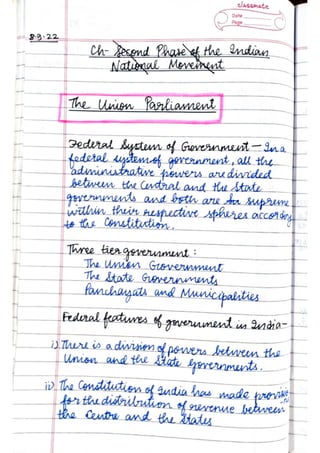 classmate
Date
Page
8-9-22
Ch- Second Phase of the Indian
National Movement
The Union Parliament
Federal System of Government - In a
federal system of government, all the
administrative powers are divided
between the Central and the State
governments and both are supreme
within their respective spheres according
to the Constitution.
Three tier government :
The Union Government
The State Governments
Panchayats and Municipalities
Federal features of government in India-
i) There is a division of powers between the
Union and the State governments.
ii) The Constitution of India has made provision
for the distribution of revenue between
the Centre and the States